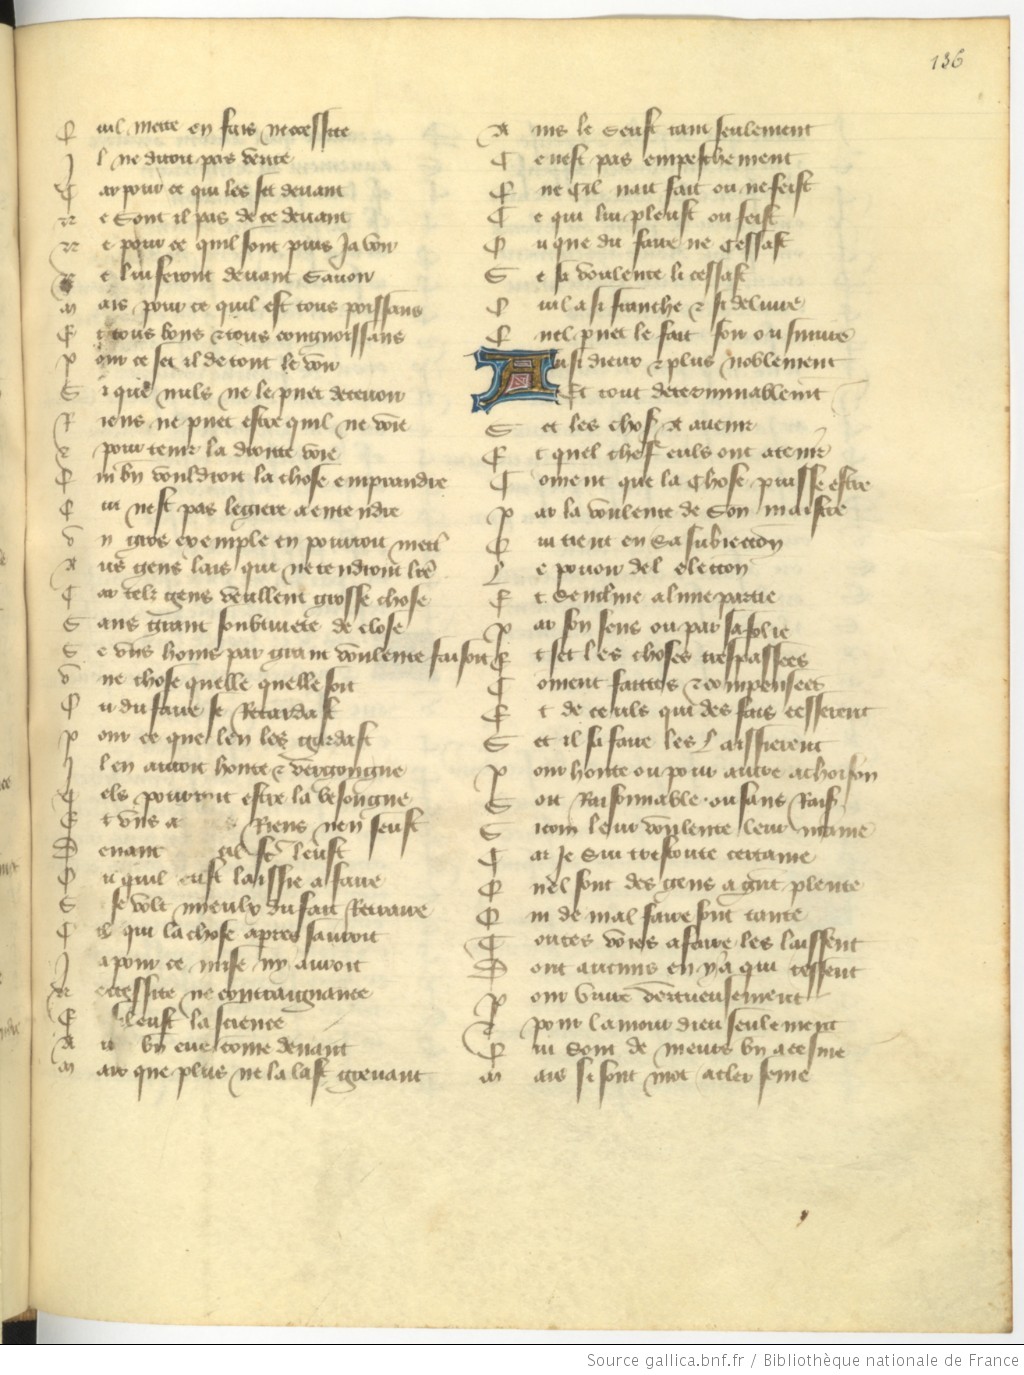 136
Quil mette en fais necessite
Il ne diroit pas verite
Car pour ce qui les scet devant
Ne sont il pas de ce devant
Ne pour ce quil sont puis ja voir
Ne lui seront devant savoir
Mais pour ce quil est tous poissans
Et tous bons et tous congnoissans
Pour ce scet il de tout le voir
Si que nuls ne le puet decevoir
Riens ne puet estre quil ne voie
pour tenir la droite voie
Qui bn vouldroit la chose emprandre
Qui nest pas legiere a entendre
Un gros exemple en pourroit mettr
Aus gens lais qui nentendront lre
Car telz gens veullent grosse chose
Sans grant soubtivete de close
Se uns homs par grant voulente faisoit
Une chose quelle quelle soit
Ou du faire se retardast
Pour ce que len les gardast
Il en auroit honte et vergongne
Tels pourroit estre la besongne
Et uns a Riens nen seust
Devant quil fc leust
Ou quil eust laissie a faire
Se volt mieulx du fait retraire
Cil qui la chose apres sauroit
Ja pour ce mise ny auroit
Necessite ne contraignance
Et leust la science
Au bn eue come devant
Mais que plus ne la last grevant
Mais le seust tant seulement
Ce nest pas empeschement
Que cil nait fait ou ne feist
Ce qui lui pleust ou seist
Ou que du faire ne cessast
Se sa voulente li cessast
Quil a si franche et si delivre
Quel puet le fait foir ou suivre
Ausi dieux et plus noblement
Et tout determinablement
Set les choses a avenir
Et quel chef euls ont a tenir
Coment que la chose puisse estre
Par la voulente de son maistre
Qui tient en sa subieccion
Le povoir del eleccion
Et sencline a lune partie
Par son sens ou par sa folie
Et scet les choses trespassees
Coment faittes et compensees
Et de ceuls qui des fais cesserent
Set il sa faire les laissierent
Pour honte ou pour autre achoison
Soit Raisonnable ou sans Rais
Sicom leur voulente leur maine
Car je sui trestoute certaine
Quel sont des gens a grt plente
Qui de mal faire sont tante
Toutes voies a faire les laissent
Dont aucuns en y a qui cessent
Pour vivre vertueusement
Et pour lamour dieu seulement
Qui sont de meurs bn acesme
Mais si sont mot acler seme
Source gallica.bnf.fr / Bibliothèque nationale de France